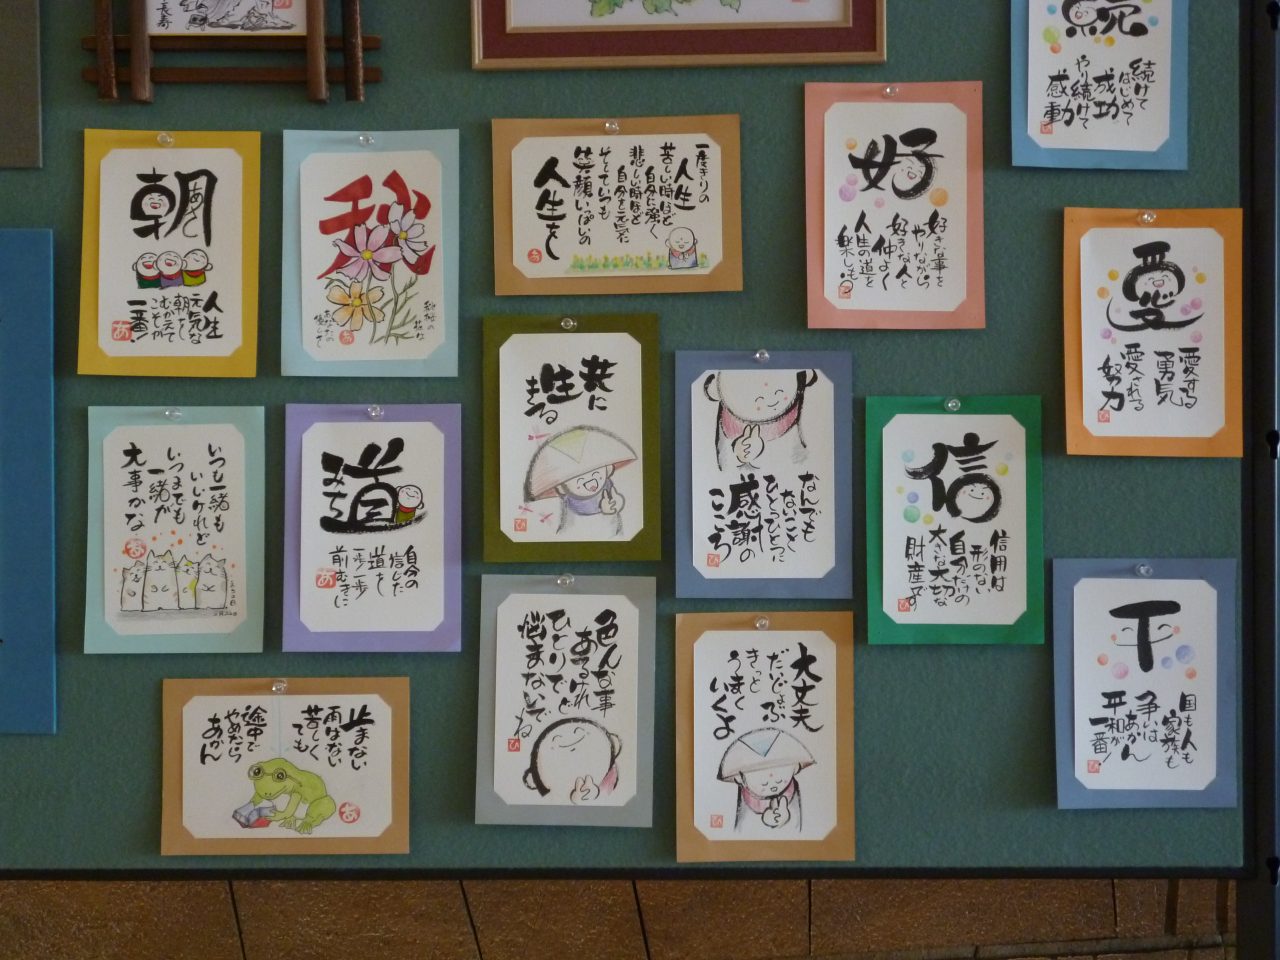 長寿
続
続けて
はじめて
成功
やり続けて
感動
朝
あさ
人生
元気な
朝をし
むかえて
こそしが
一番!
あ
秋
秋桜の
一度きりの
人生
苦しい時ほど
自分に強く
悲しい時ほど
自分を元気に
そしていつも
笑顔いっぱいの
人生をし
好
好きな事を
やりながら
好きな人と
仲よく
人生の道を
楽しもう
愛
愛する
勇気
愛される
努力
ひ
いつも一緒も
いいけれど
いつまでも
一緒が
大事かな
道
みち
自分の
信じた
道をし
一歩一歩
前むきに
あ
共に
生
きる
ひ
なんでも
ないこと
ひとつひとつに
感謝の
こころ
ひ
信
信用は
形のない
自分だけの
大きな大切な
財産です
ひ
平
国も人も
家族も
争いは
あかん
平和が
一番!
ひ
色んな事
あるけれど
ひとりで
悩まないでね
ひ
大丈夫
だいじょぶ
きっと
うまく
いくよ
ひ
止まない
雨はない
苦しく
ても
途中で
やめたら
あかん
あ